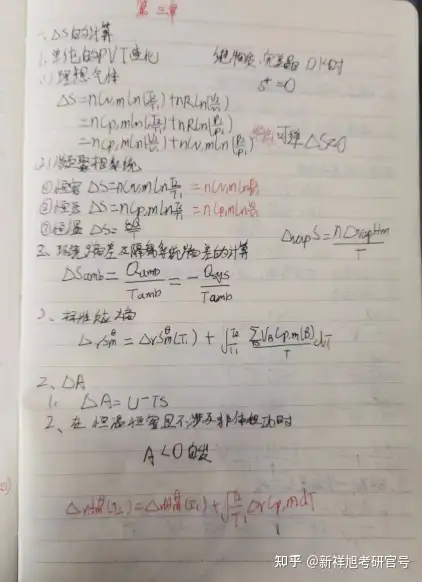 第三章
一、ΔS的计算
1、单纯的PVT变化 纯物质、完美晶 0K时
(1)理想气体 S*=0
ΔS=nCv,mln(T₂/T₁)+nRln(V₂/V₁)
=nCp,mln(T₂/T₁)+nRln(P₁/P₂)
=nCp,mln(V₂/V₁)+nCv,mln(P₂/P₁) 可逆ΔS=0
(2)凝聚相系统
①恒容 ΔS=nCv,mlnT₂/T₁=nCv,mln
②恒压 ΔS=nCp,mlnT₂/T₁=nCp,mln
③恒温 ΔS=
ΔvapS=nΔvapHm/T
2、环境熵差及隔离系统熵差的计算
ΔSamb=Qamb/Tamb=-Qsys/Tamb
3、标准反应熵
ΔrSm^θ=ΔrSm^θ(T₁)+∫T₁^T₂ ΣVB Cp,m(B)/T dT
2、ΔA
1、ΔA=U-TS
2、在恒温恒容且不涉及非体积功时
A<0自发
ΔrHm^θ(T₂)=ΔrHm^θ(T₁)+∫T₁^T₂ΔrCp,mdT
知乎 @新祥旭考研官号